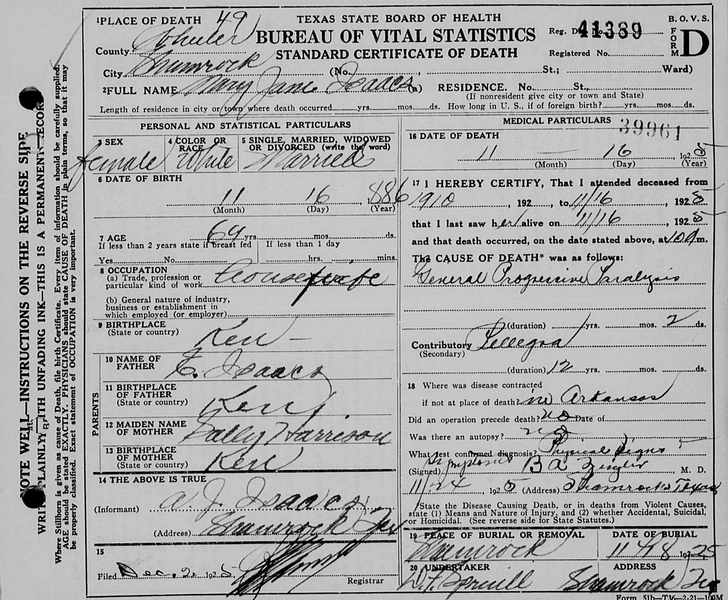 TEXAS STATE BOARD OF HEALTH
BUREAU OF VITAL STATISTICS
STANDARD CERTIFICATE OF DEATH
B. O. V. S.
FORM D
Reg. Dis. No. 41389
Registered No.
1 PLACE OF DEATH 49
County Wheeler
City Shamrock (No. St.; Ward)
2 FULL NAME Mary Jane Isaacs RESIDENCE. No. St.,
(If nonresident give city or town and State)
Length of residence in city or town where death occurred yrs. mos. ds. How long in U. S., if of foreign birth? yrs. mos. ds.
PERSONAL AND STATISTICAL PARTICULARS
3 SEX female
4 COLOR OR RACE White
5 SINGLE, MARRIED, WIDOWED OR DIVORCED (write the word) Married
6 DATE OF BIRTH
11 16 886
(Month) (Day) (Year)
7 AGE 69 yrs. mos. ds.
If less than 2 years state if breast fed If less than 1 day
Yes No hrs. min.
8 OCCUPATION
(a) Trade, profession or particular kind of work Housewife
(b) General nature of industry, business or establishment in which employed (or employer)
9 BIRTHPLACE (State or country) Ken
PARENTS
10 NAME OF FATHER E. Isaacs
11 BIRTHPLACE OF FATHER (State or country) Ken
12 MAIDEN NAME OF MOTHER Sally Harrison
13 BIRTHPLACE OF MOTHER (State or country) Ken
14 THE ABOVE IS TRUE
(Informant) A. J. Isaacs
(Address) Shamrock Tex
15
Filed Dec. 2, 1925
Registrar
MEDICAL PARTICULARS
39961
16 DATE OF DEATH
11 16 1925
(Month) (Day) (Year)
17 I HEREBY CERTIFY, That I attended deceased from
1910, 192 to 11/16 1925
that I last saw her alive on 11/16 1925
and that death occurred, on the date stated above, at m.
The CAUSE OF DEATH* was as follows:
General Progressive Paralysis
(duration) yrs. mos. 2
Contributory (Secondary) Pellegra
(duration) 12 yrs. mos. ds.
18 Where was disease contracted
if not at place of death? in Arkansas
Did an operation precede death? no Date of
Was there an autopsy? no
What test confirmed diagnosis? Physical signs
(Signed) M. D.
11/24 1925 (Address) Shamrock Texas
*State the Disease Causing Death, or in deaths from Violent Causes, state (1) Means and Nature of Injury, and (2) whether Accidental, Suicidal, or Homicidal. (See reverse side for State Statutes.)
19 PLACE OF BURIAL OR REMOVAL DATE OF BURIAL
Shamrock
20 UNDERTAKER ADDRESS
Spruill Shamrock Tex
Form 51b-TV-2-21-100M
NOTE WELL—INSTRUCTIONS ON THE REVERSE SIDE
WRITE PLAINLY WITH UNFADING INK—THIS IS A PERMANENT RECORD
Where Stillborn is given as cause of Death, file birth Certificate. Every item of information should be carefully supplied:
AGE should be stated EXACTLY. PHYSICIANS should state CAUSE OF DEATH in plain terms, so that it may
be properly classified. Exact statement of OCCUPATION is very important.